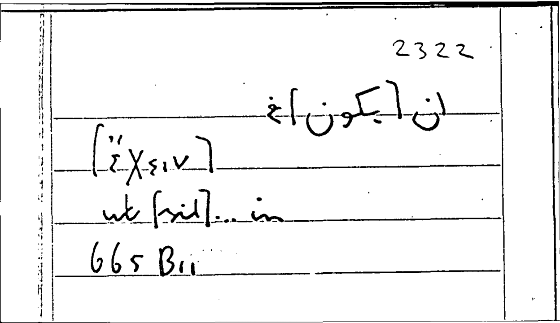 2322
ان [يكون]
[ἔχειν]
ut [sit]... in
665 B11